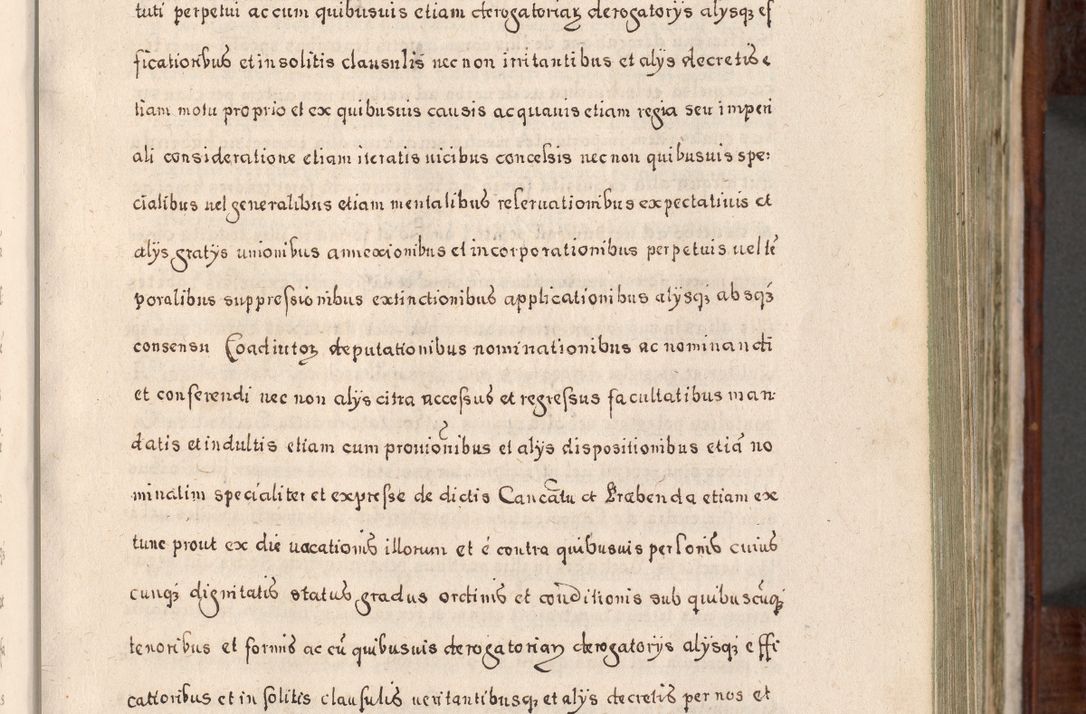 tuti perpetui ac cum quibusuis etiam derogatoriaꝝ derogatorys alysqꝫ ef
ficationibus et insolitis clausulis nec non irritantibus et alys decretis e
tiam motu proprio et ex quibusuis causis ac quauis etiam regia seu imperi
ali consideratione etiam iteratis uicibus concessis nec non quibusuis spe:
cialibus uel generalibus etiam mentalibus reseruationibus expectatiuis et
alys gratys unionibus annexionibus et incorporationibus perpetuis uel tē
poralibus suppressionibus extinctionibus applicationibus alysqꝫ absqꝫ
consensu Coadiutoꝝ deputationibus nominationibus ac nominandi
et conferendi nec non alys citra accessus et regressus facultatibus man:
datis et indultis etiam cum prouiōnibus et alys dispositionibus etiā no
minatim specialiter et expresse de dictis Cancātu et Præbenda etiam ex
tunc prout ex die uacationis illorum et é contra quibusuis personis cuius
cunqꝫ dignitatis status gradus ordinis et conditionis sub quibuscūqꝫ
tenoribus et formis ac cū quibusuis derogatoriaꝝ derogatorys alysqꝫ effi
cationibus et in solitis clausulis ueritantibusqꝫ et alys decretis per nos et